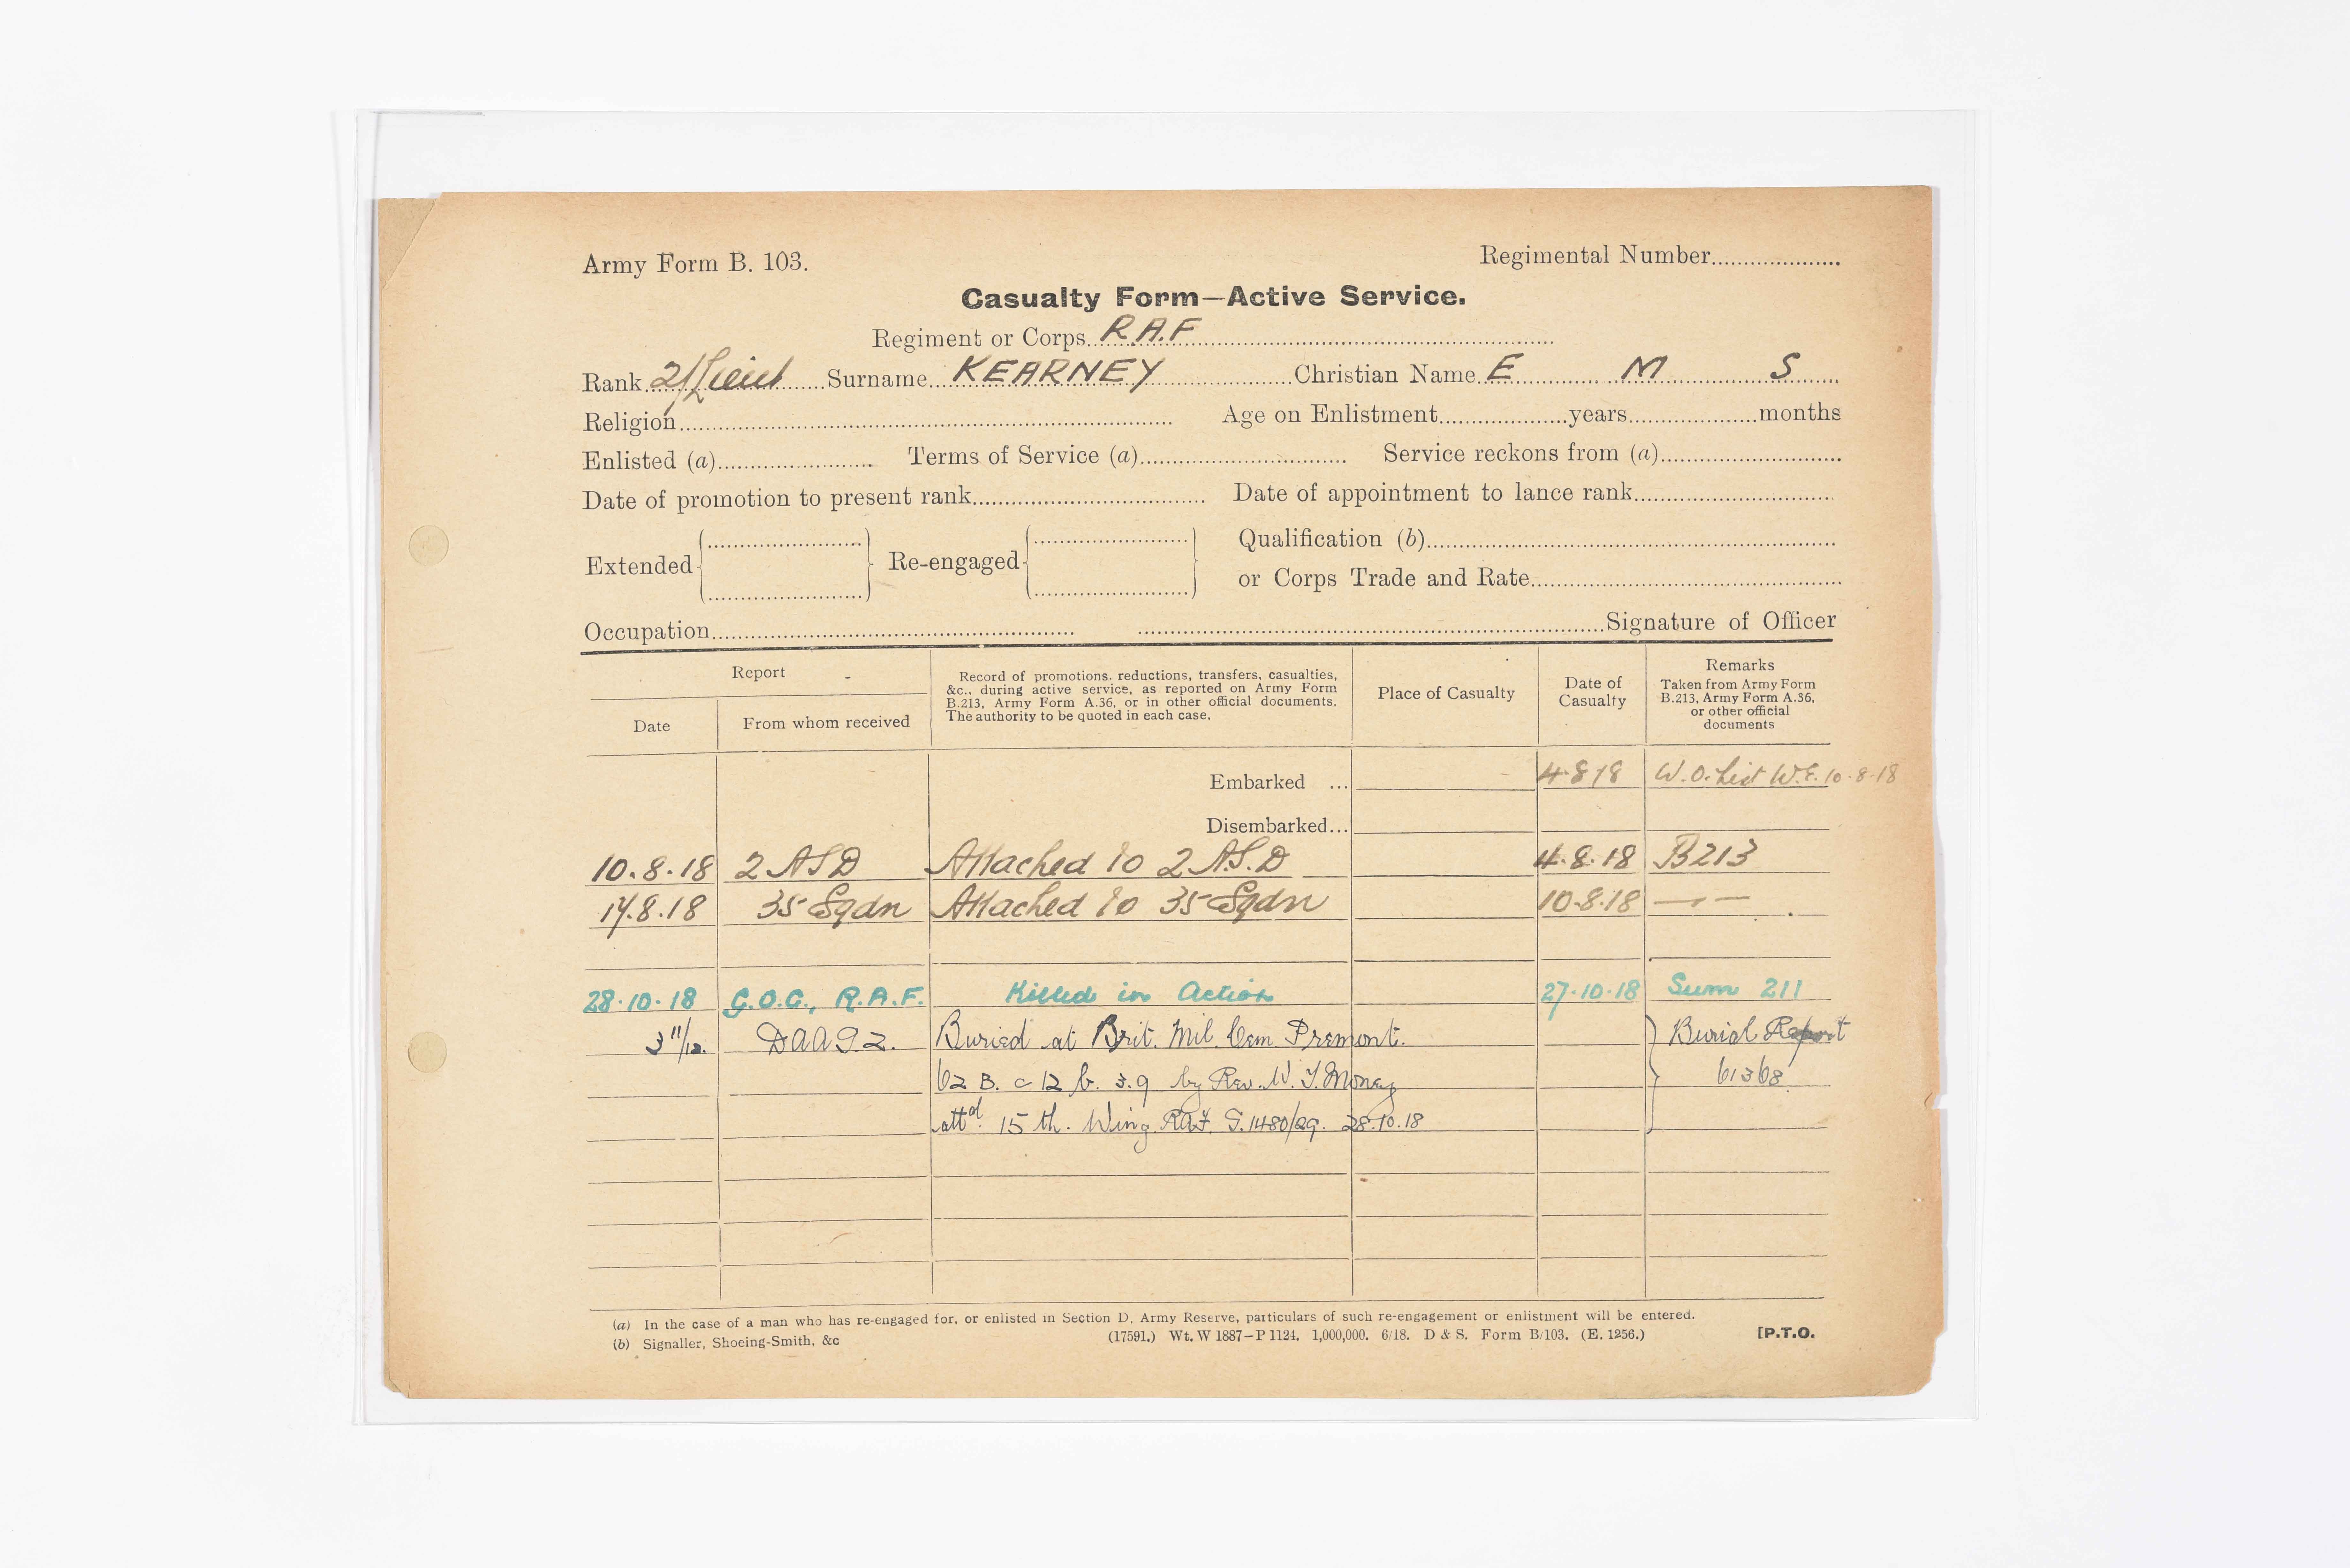 Army Form B. 103.
Regimental Number....................
Casualty Form—Active Service.
Regiment or Corps R.A.F
Rank 2/Lieut Surname KEARNEY Christian Name E M S
Religion
Age on Enlistment years months
Enlisted (a) Terms of Service (a) Service reckons from (a)
Date of promotion to present rank Date of appointment to lance rank
Extended Re-engaged
Qualification (b)
or Corps Trade and Rate
Occupation Signature of Officer
Report
Date From whom received
Record of promotions, reductions, transfers, casualties,
&c., during active service, as reported on Army Form
B.213, Army Form A.36, or in other official documents.
The authority to be quoted in each case.
Place of Casualty
Date of
Casualty
Remarks
Taken from Army Form
B.213, Army Form A.36,
or other official
documents
Embarked ... 4.8.18 W.O. List W.E. 10.8.18
Disembarked...
10.8.18 2 ASD Attached to 2 A.S.D 4.8.18 B213
17.8.18 35 Sqdn Attached to 35 Sqdn 10.8.18 — —
28.10.18 G.O.C., R.A.F. Killed in Action 27.10.18 Sum 211
3 11/12. DAAG2. Buried at Brit. Mil. Cem Premont. Burial Report
62 B. C 12 b. 3.9 by Rev. W. T. Money 61368
attd. 15th. Wing RAF. G.1480/29. 28.10.18
(a) In the case of a man who has re-engaged for, or enlisted in Section D, Army Reserve, particulars of such re-engagement or enlistment will be entered.
(b) Signaller, Shoeing-Smith, &c
(17591.) Wt. W 1887—P 1124. 1,000,000. 6/18. D & S. Form B/103. (E. 1256.)
[P.T.O.